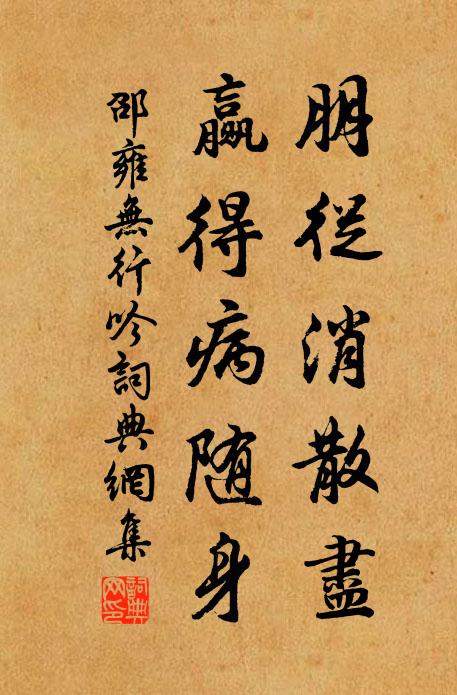 朋從消散盡
贏得病随身
邵雍無行吟詞典網集
詞典網印